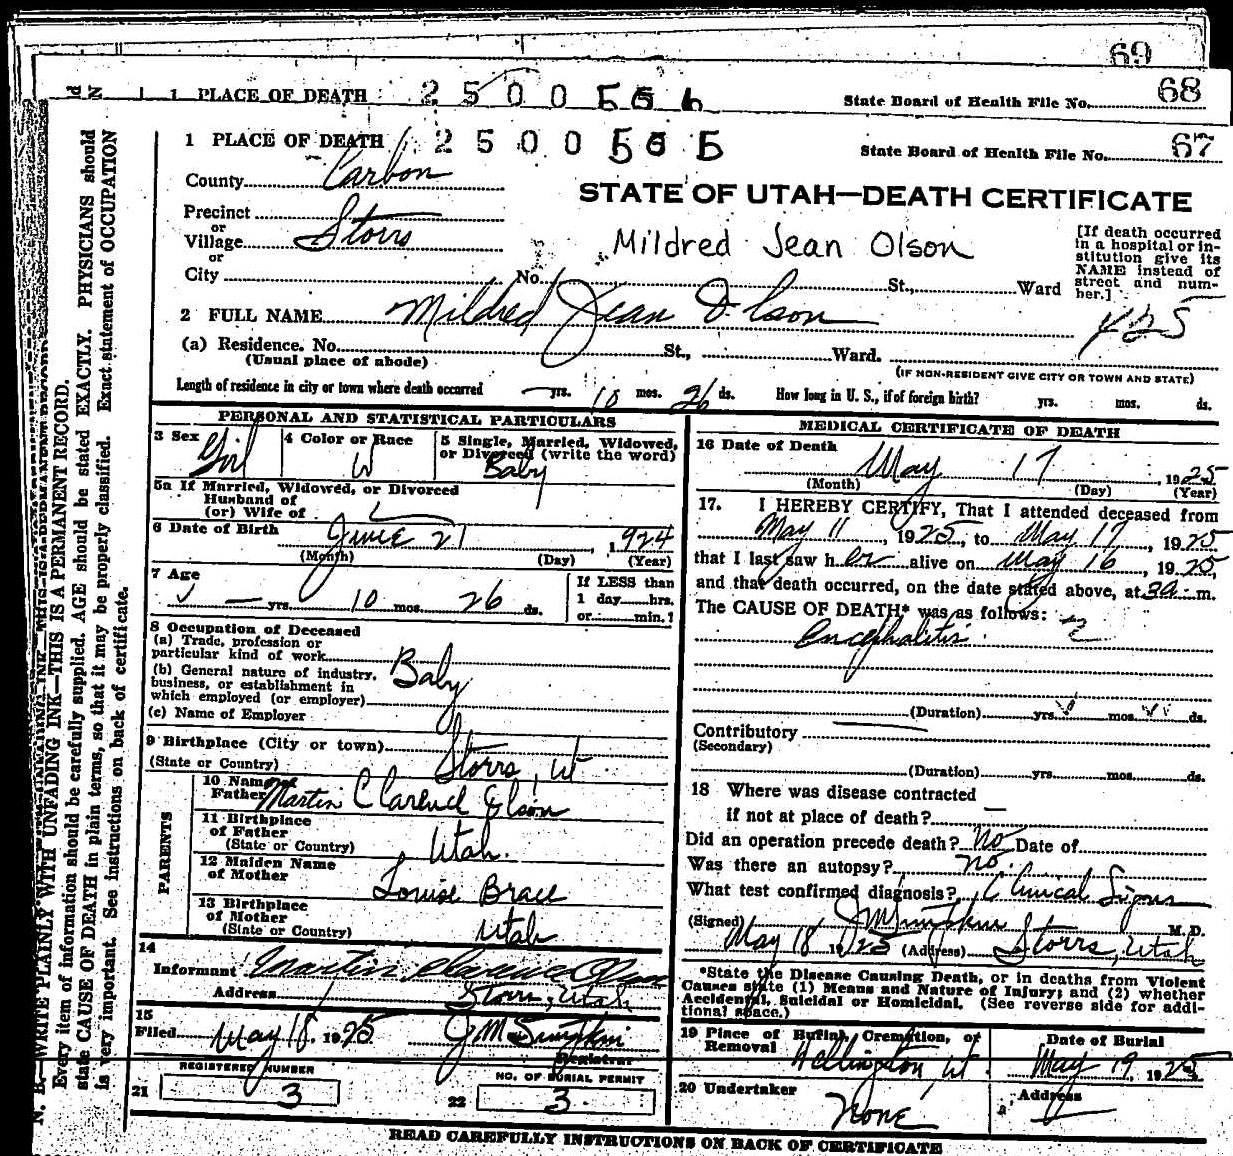 69
1 PLACE OF DEATH 2500566 State Board of Health File No. 68
1 PLACE OF DEATH 2500565 State Board of Health File No. 67
County Carbon
STATE OF UTAH—DEATH CERTIFICATE
Precinct
or
Village Storrs
or
City No. St., Ward
Mildred Jean Olson
[If death occurred in a hospital or institution give its NAME instead of street and number.]
2 FULL NAME Mildred Jean Olson
425
(a) Residence. No. St., Ward.
(Usual place of abode) (IF NON-RESIDENT GIVE CITY OR TOWN AND STATE)
Length of residence in city or town where death occurred — yrs. 10 mos. 26 ds. How long in U. S., if of foreign birth? yrs. mos. ds.
PERSONAL AND STATISTICAL PARTICULARS
3 Sex Girl
4 Color or Race W
5 Single, Married, Widowed, or Divorced (write the word) Baby
5a If Married, Widowed, or Divorced
Husband of
(or) Wife of
6 Date of Birth June 21, 1924
(Month) (Day) (Year)
7 Age — yrs. 10 mos. 26 ds.
If LESS than
1 day hrs.
or min.?
8 Occupation of Deceased
(a) Trade, profession or
particular kind of work Baby
(b) General nature of industry,
business, or establishment in
which employed (or employer)
(c) Name of Employer
9 Birthplace (City or town) Storrs, Ut
(State or Country)
PARENTS
10 Name of
Father Martin Clarence Olson
11 Birthplace
of Father
(State or Country) Utah.
12 Maiden Name
of Mother Louise Brace
13 Birthplace
of Mother
(State or Country) Utah
14
Informant Martin Clarence Olson
Address Storrs, Utah
15
Filed May 18, 1925 J M Simpkin
Registrar
REGISTERED NUMBER
21 3
NO. OF BURIAL PERMIT
22 3
MEDICAL CERTIFICATE OF DEATH
16 Date of Death
May 17, 1925
(Month) (Day) (Year)
17. I HEREBY CERTIFY, That I attended deceased from
May 11, 1925, to May 17, 1925
that I last saw h er alive on May 16, 1925,
and that death occurred, on the date stated above, at 3 a. m.
The CAUSE OF DEATH* was as follows:
Encephalitis
(Duration) yrs. mos. ds.
Contributory
(Secondary)
(Duration) yrs. mos. ds.
18 Where was disease contracted
if not at place of death? —
Did an operation precede death? No Date of
Was there an autopsy? no.
What test confirmed diagnosis? Clinical Signs
(Signed) J M Simpkin M. D.
May 18 1925 (Address) Storrs, Utah
*State the Disease Causing Death, or in deaths from Violent
Causes state (1) Means and Nature of Injury; and (2) whether
Accidental, Suicidal or Homicidal. (See reverse side for addi-
tional space.)
19 Place of Burial, Cremation, or
Removal Wellington, Ut.
Date of Burial
May 19, 1925
20 Undertaker
None
Address
READ CAREFULLY INSTRUCTIONS ON BACK OF CERTIFICATE
N. B.—WRITE PLAINLY WITH UNFADING INK—THIS IS A PERMANENT RECORD.
Every item of information should be carefully supplied. AGE should be stated EXACTLY. PHYSICIANS should
state CAUSE OF DEATH in plain terms, so that it may be properly classified. Exact statement of OCCUPATION
is very important. See instructions on back of certificate.